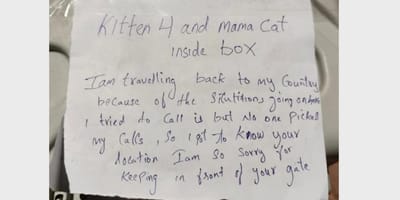 Kitten 4 and mama cat
inside box
Iam travelling back to my Country
because of the Situtitions going on
I tried to call is but No one Picked
my Calls, So I got to know your
location Iam So Sorry for
Keeping in front of your gate